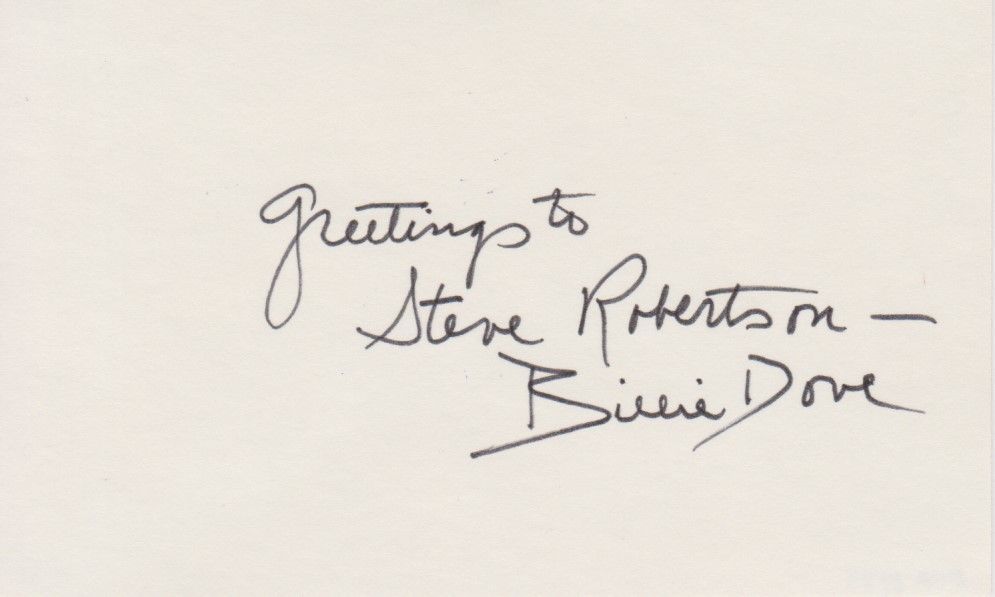 Greetings to
Steve Robertson —
Billie Dove